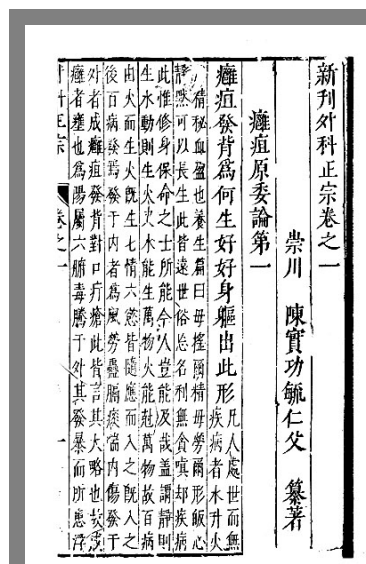 新刊外科正宗卷之一
崇川 陳實功毓仁父 纂著
癰疽原委論第一
癰疽發背爲何生好好身軀出此形
凡人處世而無
疾病者水升火
降精秘血盈也養生篇曰毋搖爾精毋勞爾形皈心
靜默可以長生此皆遠世俗忘名利無貪嗔却疾病
此惟修身保命之士所能今人豈能及哉盖謂靜則
生水動則生火又水能生萬物火能尅萬物故百病
由火而生火旣生七情六慾皆隨應而入之旣入之
後百病發焉發于內者爲風勞蠱膈痰喘內傷發于
外者成癰疽發背對口疔瘡此皆言其大略也故成
癰者壅也爲陽屬六腑毒騰于外其發暴而所患浮
外科正宗 卷之一 一